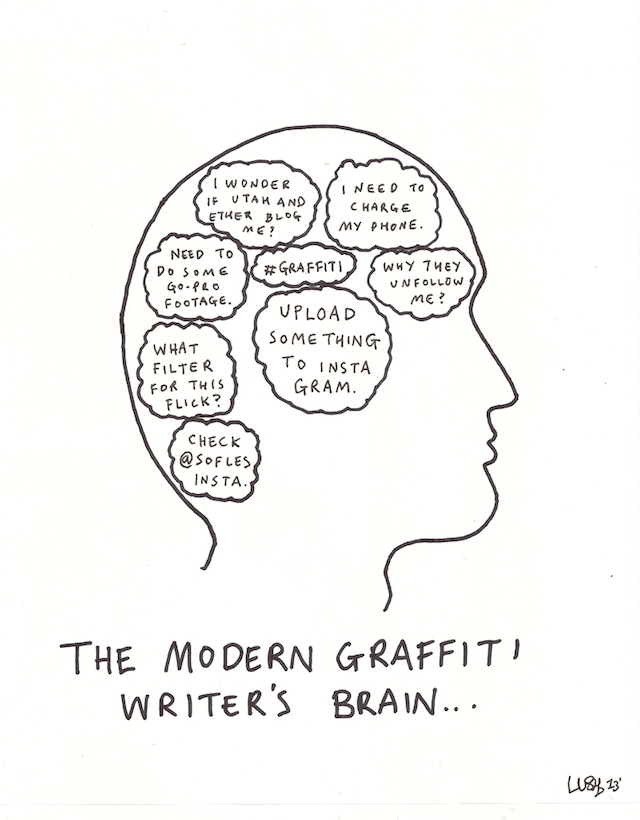 I WONDER
IF UTAH AND
ETHER BLOG
ME?
I NEED TO
CHARGE
MY PHONE.
NEED TO
DO SOME
GO-PRO
FOOTAGE.
#GRAFFITI
WHY THEY
UNFOLLOW
ME?
UPLOAD
SOMETHING
TO INSTA
GRAM.
WHAT
FILTER
FOR THIS
FLICK?
CHECK
@SOFLES
INSTA.
THE MODERN GRAFFITI
WRITER'S BRAIN...
LUSH 13'